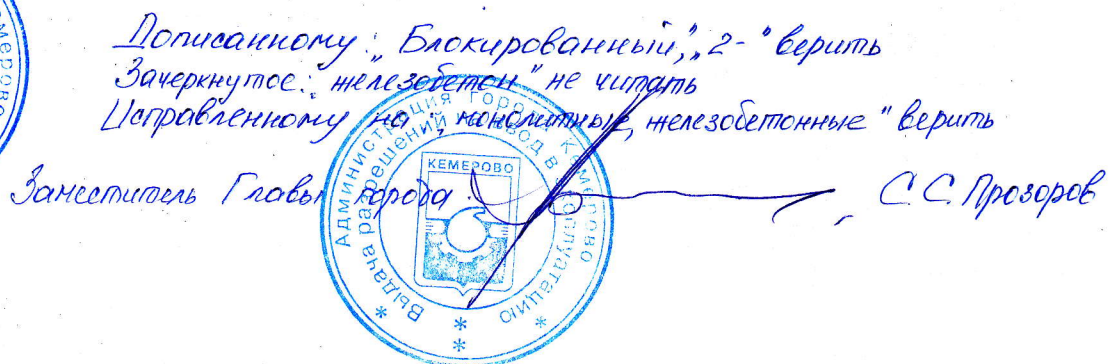 Дописанному: „Блокированный", „2-" верить
Зачеркнутое: „железобетон" не читать
Исправленному на „монолитные, железобетонные" верить
Заместитель Главы города С.С. Прозоров
Администрация города Кемерово
Выдача разрешений на ввод в эксплуатацию
КЕМЕРОВО
Кемерово